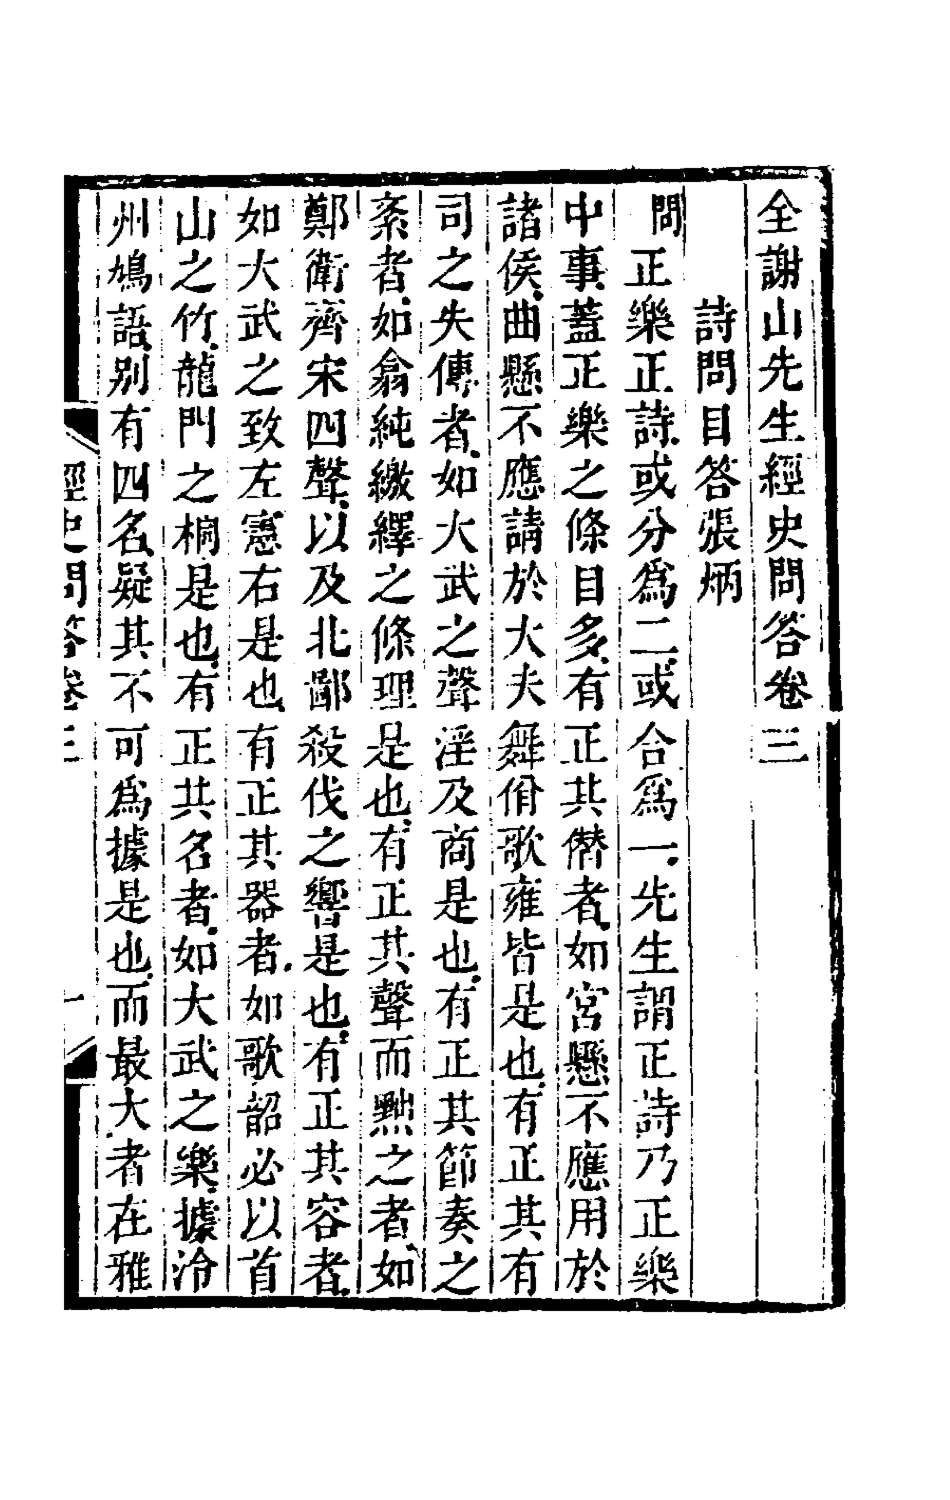 全謝山先生經史問答卷三
詩問目答張炳
問正樂正詩或分爲二或合爲一先生謂正詩乃正樂
中事蓋正樂之條目多有正其僭者如宮懸不應用於
諸侯曲懸不應請於大夫舞佾歌雍皆是也有正其有
司之失傳者如大武之聲淫及商是也有正其節奏之
紊者如翕純繳繹之條理是也有正其聲而黜之者如
鄭衛齊宋四聲以及北鄙殺伐之響是也有正其容者
如大武之致左憲右是也有正其器者如歌韶必以首
山之竹龍門之桐是也有正其名者如大武之樂據泠
州鳩語別有四名疑其不可爲據是也而最大者在雅
經史問答卷三 一